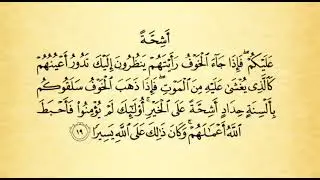 أَشِحَّةً
عَلَيْكُمْ ۖ فَإِذَا جَاءَ الْخَوْفُ رَأَيْتَهُمْ يَنظُرُونَ إِلَيْكَ تَدُورُ أَعْيُنُهُمْ
كَالَّذِي يُغْشَىٰ عَلَيْهِ مِنَ الْمَوْتِ ۖ فَإِذَا ذَهَبَ الْخَوْفُ سَلَقُوكُم
بِأَلْسِنَةٍ حِدَادٍ أَشِحَّةً عَلَى الْخَيْرِ ۚ أُولَٰئِكَ لَمْ يُؤْمِنُوا فَأَحْبَطَ
اللَّهُ أَعْمَالَهُمْ ۚ وَكَانَ ذَٰلِكَ عَلَى اللَّهِ يَسِيرًا ۝١٩